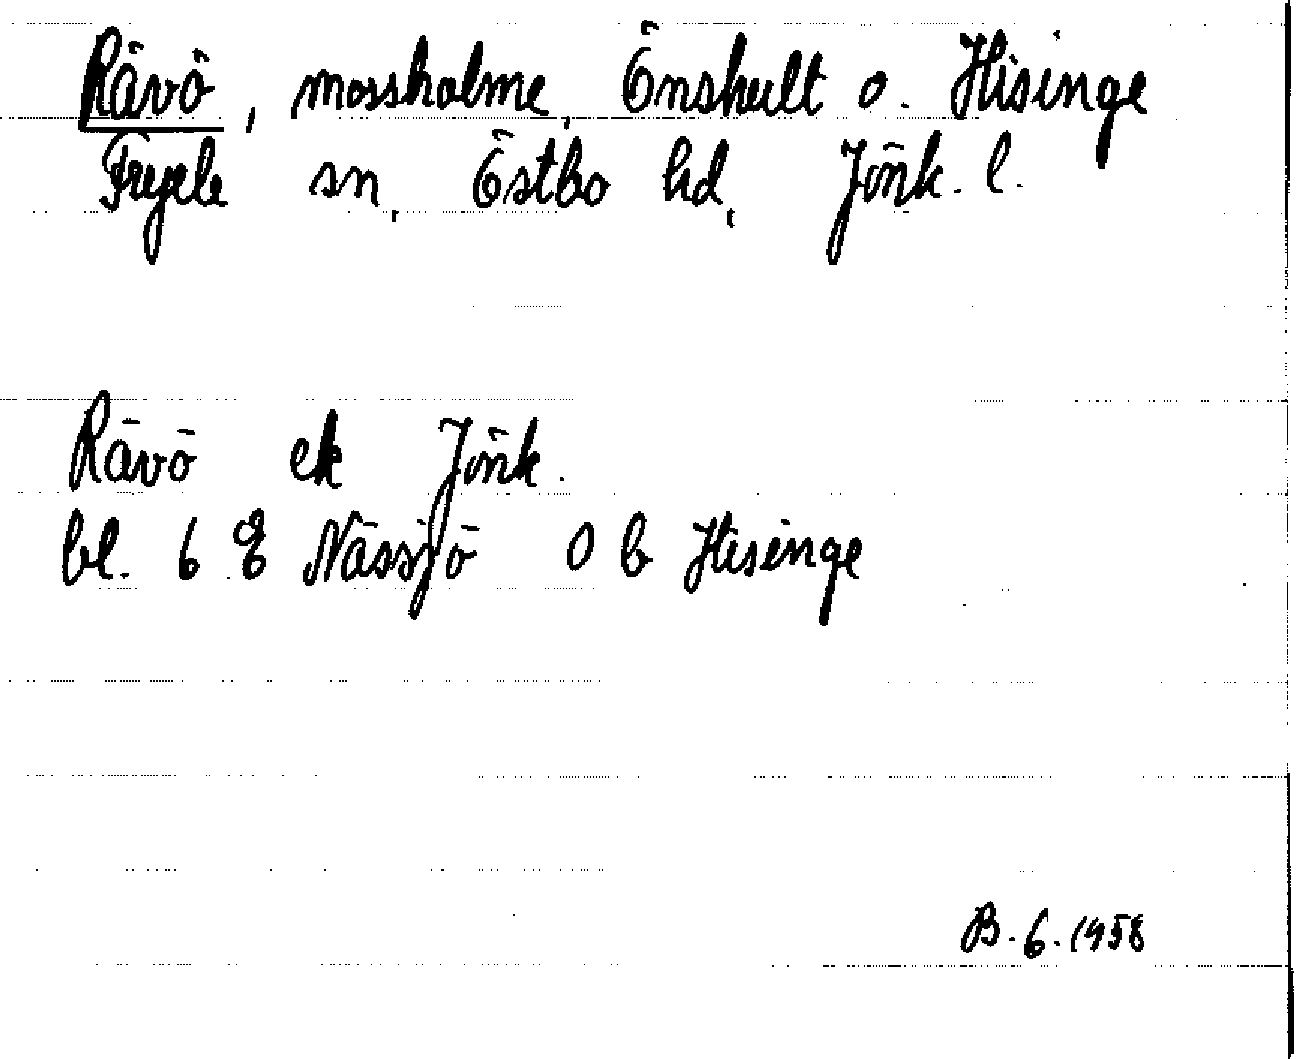 Rävö, mossholme, Önshult o. Hisinge
Fryele sn, Östbo hd, Jönk. l.
Rävö ek Jönk.
bl. 6 E Nässjö 0 b Hisinge
B. 6. 1958